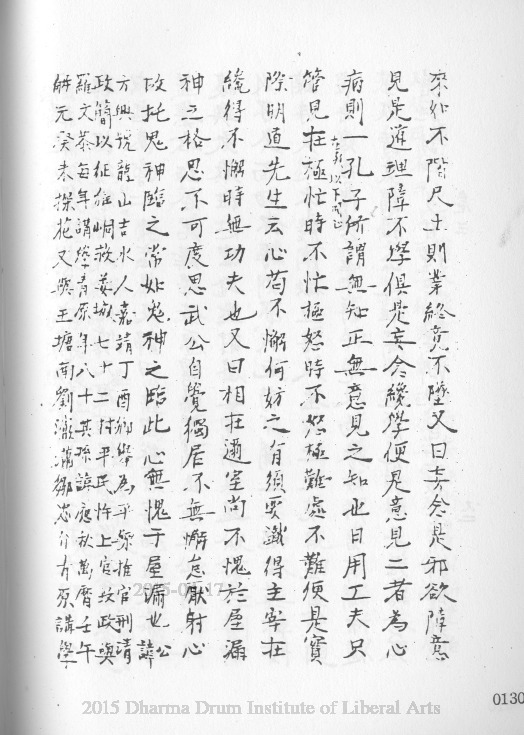 來如不階尺土則業終竟不墜又曰妄念是邪欲障意
見是道理障不學俱是妄念纔學便是意見二者為心
病則一孔子所謂無知正無意見之知也日用工夫只
管見在極忙時不忙極怒時不怒極難處不難便是實
際明道先生云心苟不懈何妨之有須要識得主宰在
纔得不懈時無功夫也又曰相在爾室尚不愧於屋漏
神之格思不可度思武公自覺獨居不無懈怠厭射心
故托鬼神臨之常如鬼神之臨此心無愧于屋漏也公諱
方興號龍山吉水人嘉靖丁酉鄉舉為平樂推官刑清
政簡以征崆峒放城七十二村平民忤上官故政與
羅文恭每年講學青原年八十其孫諱應秋萬曆壬午
解元癸未探花又與王塘南劉瀘瀟鄒忠介有原講學
0130
2015 Dharma Drum Institute of Liberal Arts